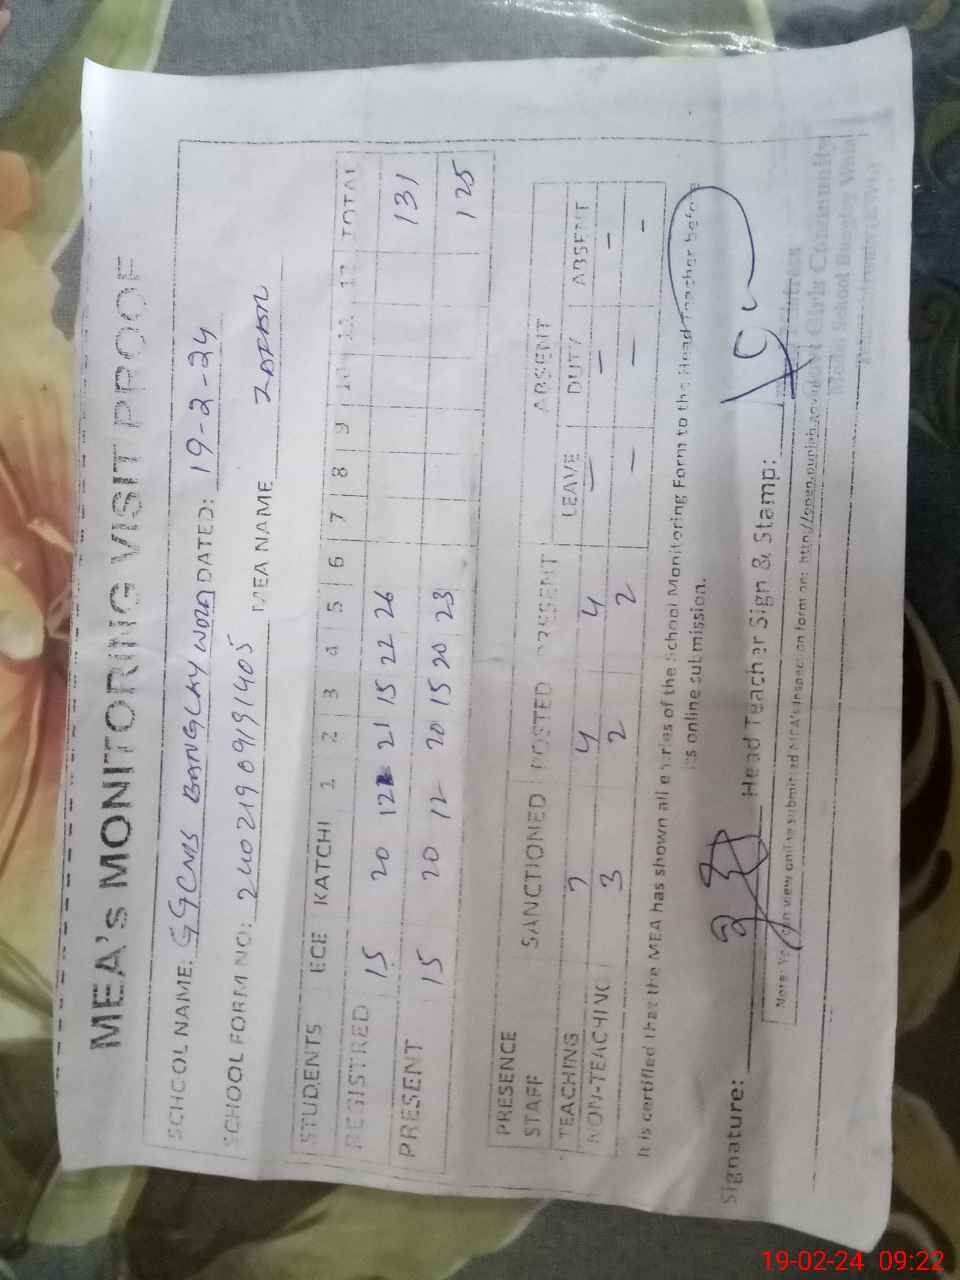 MEA's MONITORING VISIT PROOF
SCHOOL NAME: GGCMS BANGLAY WALA DATED: 19-2-24
SCHOOL FORM NO: 24021909191405 MEA NAME
STUDENTS ECE KATCHI 1 2 3 4 5 6 7 8 9 10 11 12 TOTAL
REGISTRED 15 20 12 21 15 22 26 131
PRESENT 15 20 12 20 15 20 23 125
PRESENCE ABSENT
STAFF SANCTIONED POSTED PRESENT LEAVE DUTY ABSENT
TEACHING 7 4 4 - - -
NON-TEACHING 3 2 2 - - -
It is certified that the MEA has shown all entries of the School Monitoring Form to the Head Teacher before
its online submission.
Signature: Head Teacher Sign & Stamp:
Note: You can view online submitted MEA's inspection form on: http://open.punjab.gov.pk
Girls Community
School Bangley Wala
19-02-24 09:22